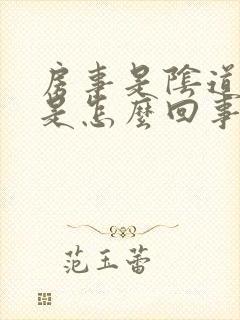 房事是陰道
是怎麼回事
范玉蕾